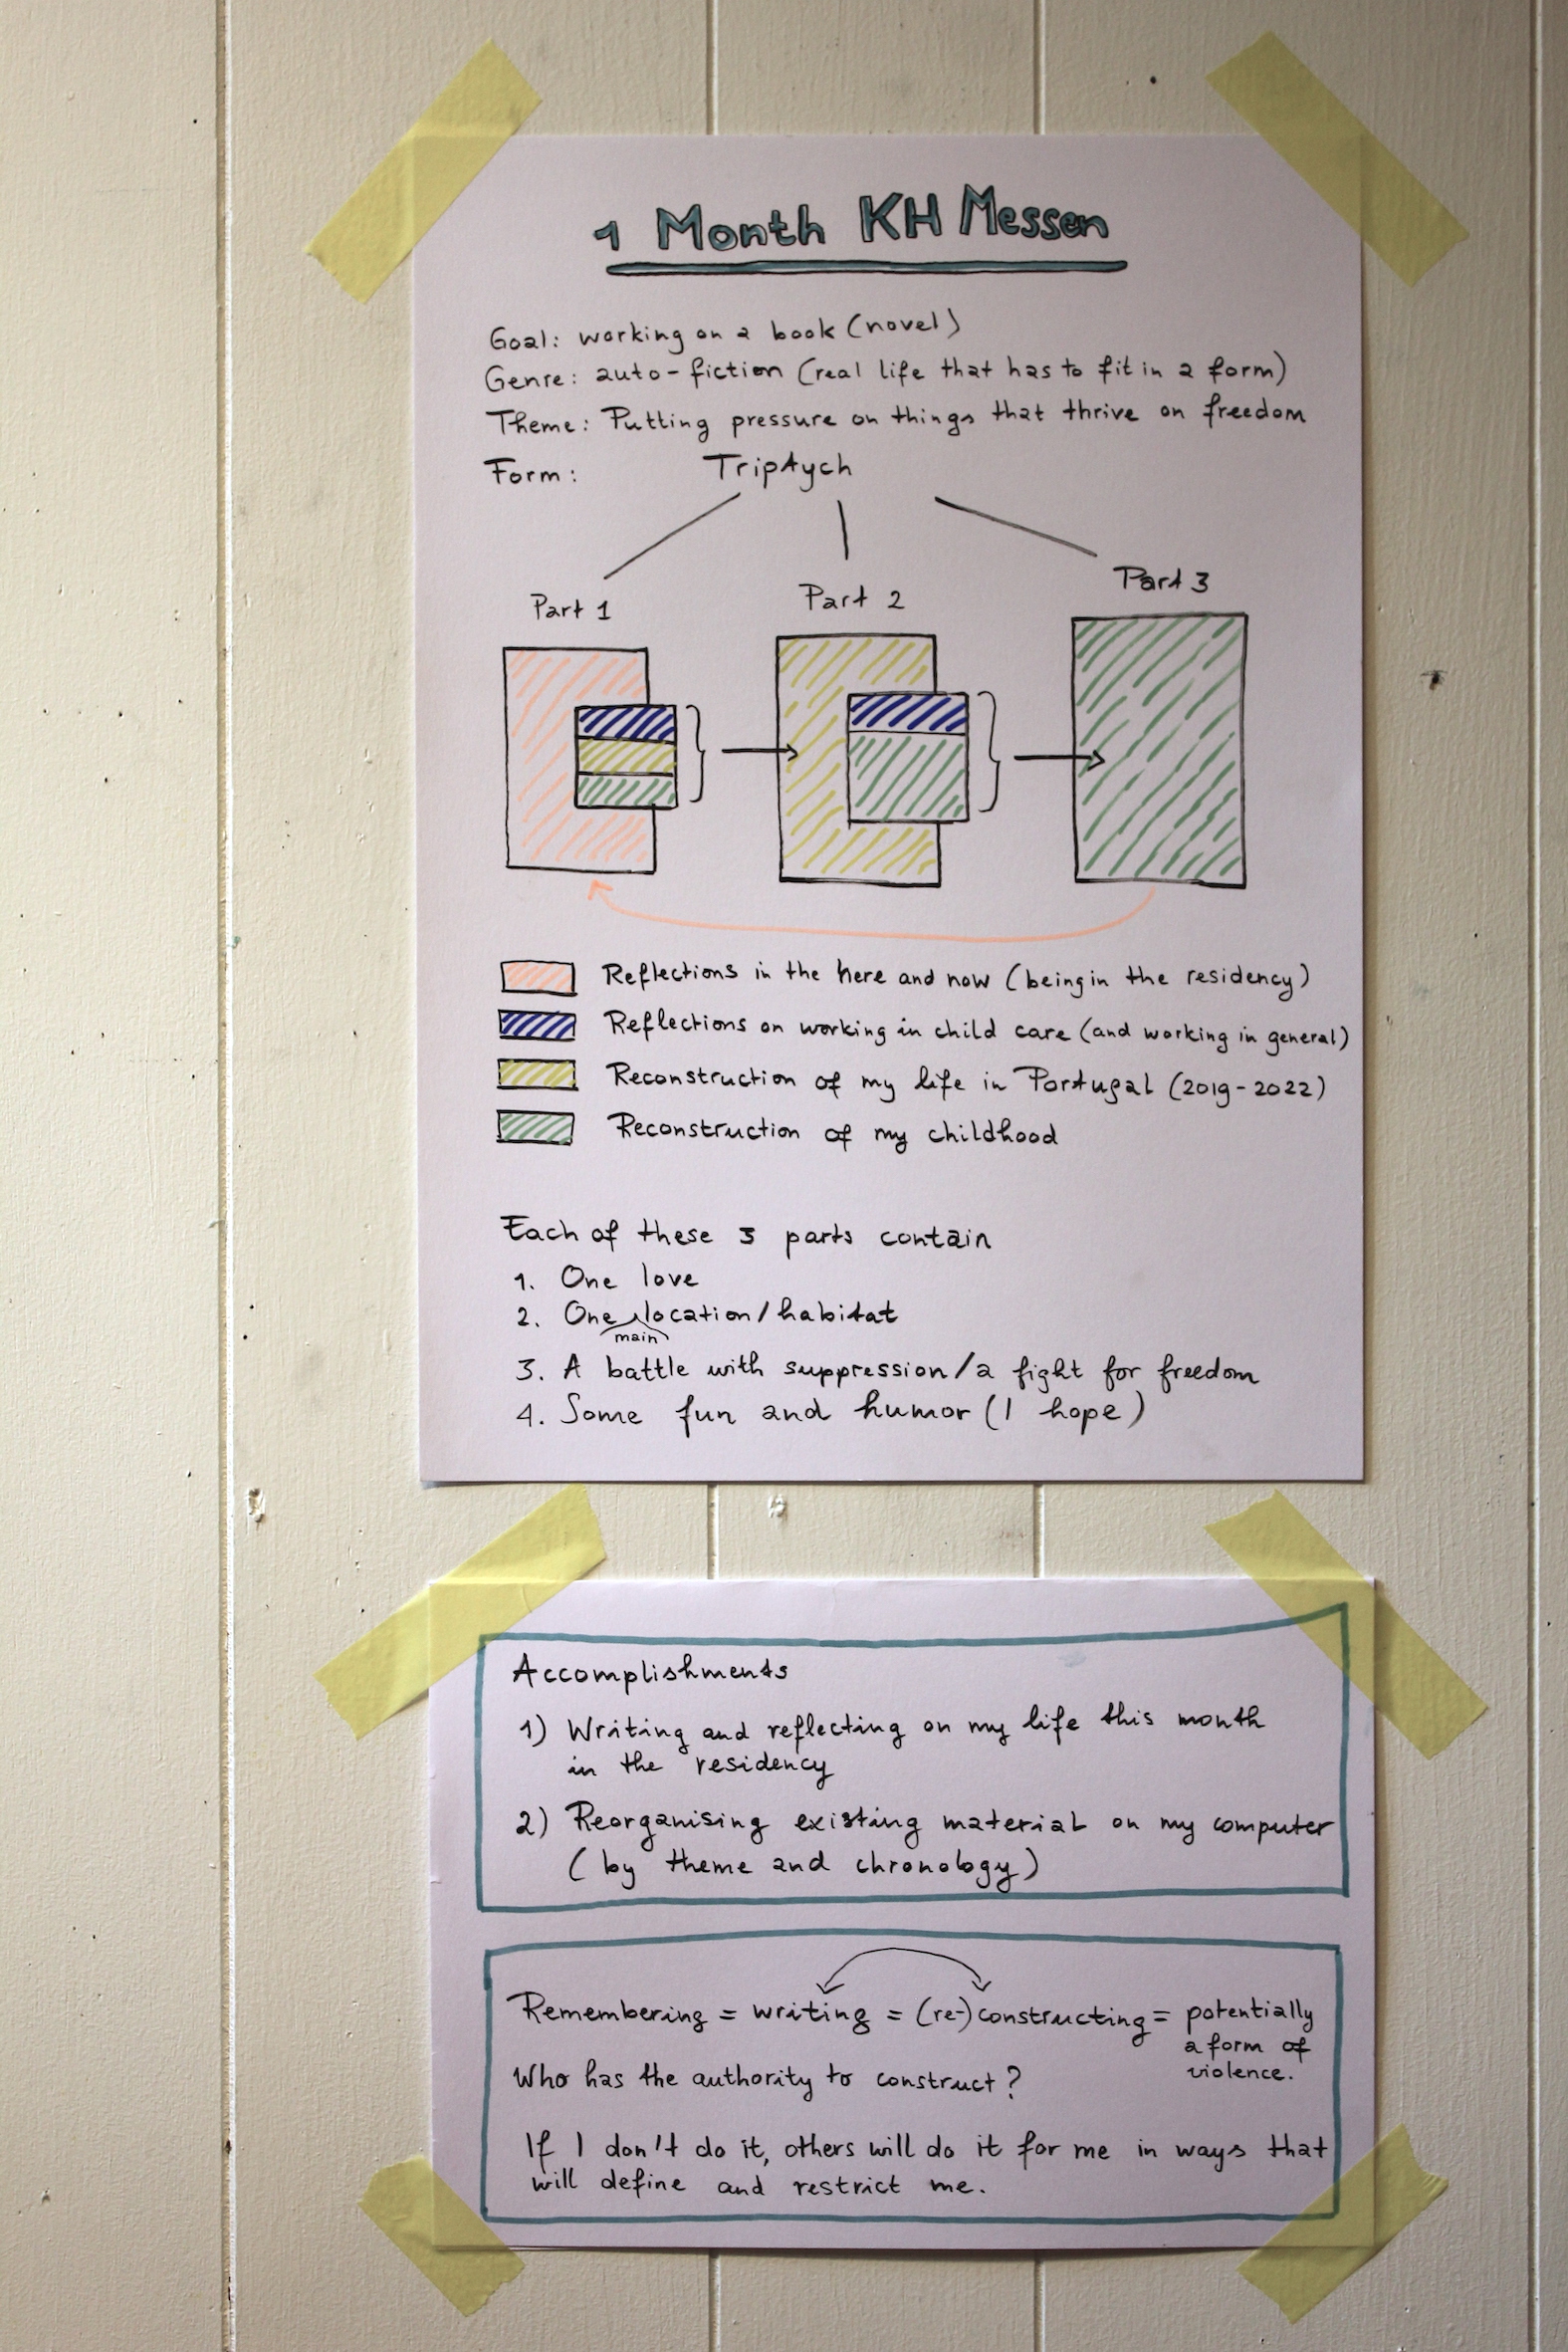 1 Month KH Messen
Goal: working on a book (novel)
Genre: auto-fiction (real life that has to fit in a form)
Theme: Putting pressure on things that thrive on freedom
Form: Triptych
Part 1
Part 2
Part 3
Reflections in the here and now (being in the residency)
Reflections on working in child care (and working in general)
Reconstruction of my life in Portugal (2019-2022)
Reconstruction of my childhood
Each of these 3 parts contain
1. One love
2. One main location/habitat
3. A battle with suppression/a fight for freedom
4. Some fun and humor (I hope)
Accomplishments
1) Writing and reflecting on my life this month
in the residency
2) Reorganising existing material on my computer
(by theme and chronology)
Remembering = writing = (re-)constructing = potentially
a form of
violence.
Who has the authority to construct?
If I don't do it, others will do it for me in ways that
will define and restrict me.